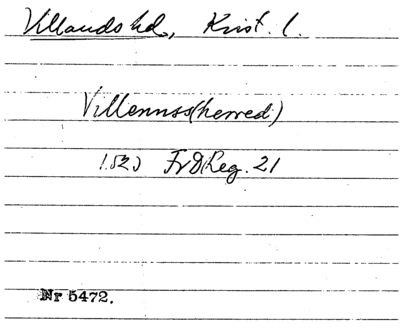 Villands hd, Krist. l.
Villennss(herred)
1523 Fr D Reg. 21
Nr 5472.